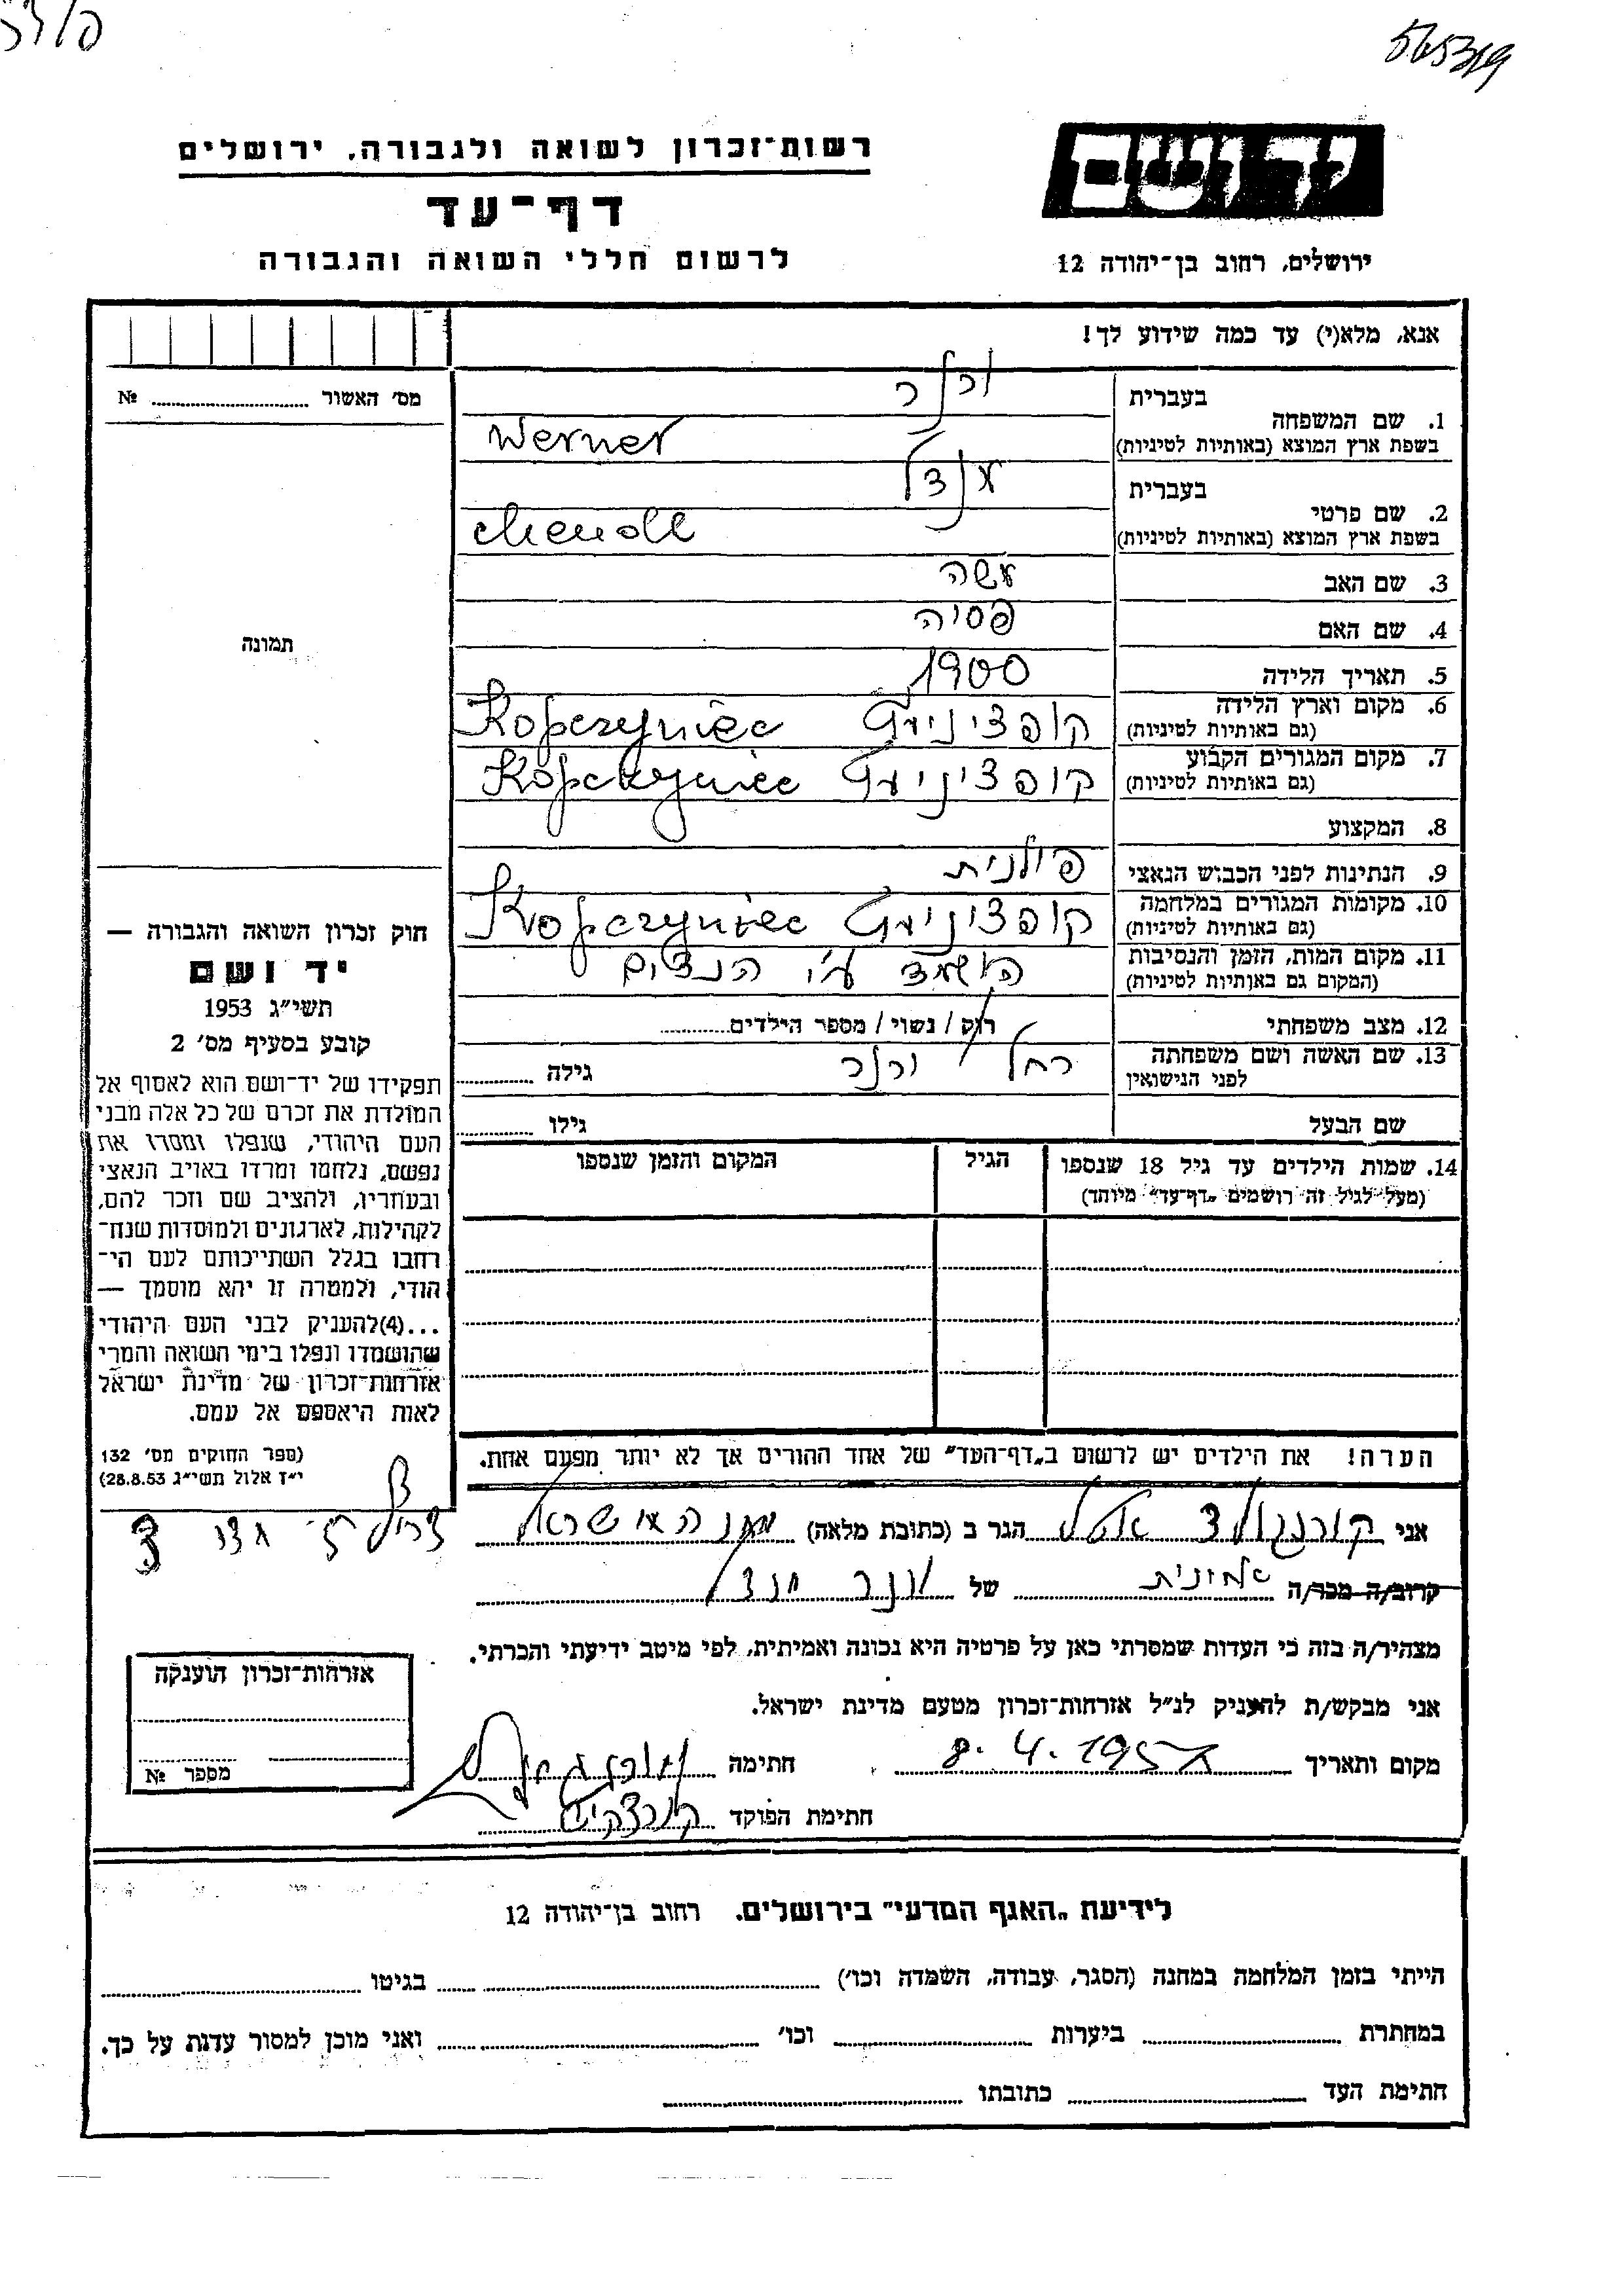 565319
רשות־זכרון לשואה ולגבורה, ירושלים
דף־עד
לרשום חללי השואה והגבורה
ידושם
ירושלים, רחוב בן־יהודה 12
אנא, מלא(י) עד כמה שידוע לך!
מס׳ האשור № 
בעברית ורנר
1. שם המשפחה
בשפת ארץ המוצא (באותיות לטיניות) Werner
בעברית מנדל
2. שם פרטי
בשפת ארץ המוצא (באותיות לטיניות) Mendl
3. שם האב משה
4. שם האם פסיה
5. תאריך הלידה 1900
6. מקום וארץ הלידה קופצינייץ Kopczyniec
(גם באותיות לטיניות)
7. מקום המגורים הקבוע קופצינייץ Kopczyniec
(גם באותיות לטיניות)
8. המקצוע
9. הנתינות לפני הכבוש הנאצי פולנית
10. מקומות המגורים במלחמה קופצינייץ Kopczyniec
(גם באותיות לטיניות)
11. מקום המות, הזמן והנסיבות הושמד ע״י הנצים
(המקום גם באותיות לטיניות)
12. מצב משפחתי רוק / נשוי / מספר הילדים
13. שם האשה ושם משפחתה רחל ורנר גילה
לפני הנישואין
שם הבעל גילו
14. שמות הילדים עד גיל 18 שנספו הגיל המקום והזמן שנספו
(מעל לגיל זה רושמים „דף־עד״ מיוחד)
הערה! את הילדים יש לרשום ב„דף־העד״ של אחד ההורים אך לא יותר מפעם אחת.
תמונה
חוק זכרון השואה והגבורה —
יד ושם
תשי״ג 1953
קובע בסעיף מס׳ 2
תפקידו של יד־ושם הוא לאסוף אל
המולדת את זכרם של כל אלה מבני
העם היהודי, שנפלו ומסרו את
נפשם, נלחמו ומרדו באויב הנאצי
ובעוזריו, ולהציב שם וזכר להם,
לקהילות, לארגונים ולמוסדות שנח־
רחבו בגלל השתייכותם לעם הי־
הודי, ולמטרה זו יהא מוסמך —
...(4)להעניק לבני העם היהודי
שהושמדו ונפלו בימי השואה והמרי
אזרחות־זכרון של מדינת ישראל
לאות היאספם אל עמם.
(ספר החוקים מס׳ 132
י״ז אלול תשי״ג 28.8.53)
אני הגר ב (כתובת מלאה)
קרוב/ה מכר/ה של ורנר מנדל
מצהיר/ה בזה כי העדות שמסרתי כאן על פרטיה היא נכונה ואמיתית, לפי מיטב ידיעתי והכרתי.
אני מבקש/ת להעניק לנ״ל אזרחות־זכרון מטעם מדינת ישראל.
מקום ותאריך 8.4.195 חתימה
חתימת הפוקד
אזרחות־זכרון הוענקה
מספר №
לידיעת „האגף המדעי״ בירושלים. רחוב בן־יהודה 12
הייתי בזמן המלחמה במחנה (הסגר, עבודה, השמדה וכו׳) בגיטו
במחתרת ביערות וכו׳ ואני מוכן למסור עדות על כך.
חתימת העד כתובתו